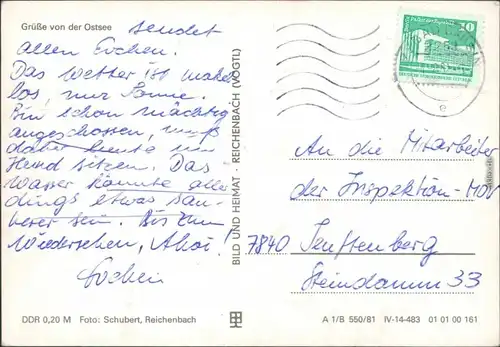 Grüße von der Ostsee sendet
allen Jochen.
Das Wetter ist makel
los, nur Sonne.
Bin schon mächtig
angeschossen, muß
daher heute im
Hemd sitzen. Das
Wasser könnte aller
dings etwas sau-
berer sein. Bis zum
Wiedersehen, Ahoi!
Jochen
BILD UND HEIMAT · REICHENBACH (VOGTL)
10
An die Mitarbeiter
der Inspektion-MOV
7840 Senftenberg
Steindamm 33
DDR 0,20 M Foto: Schubert, Reichenbach
A 1/B 550/81 IV-14-483 01 01 00 161